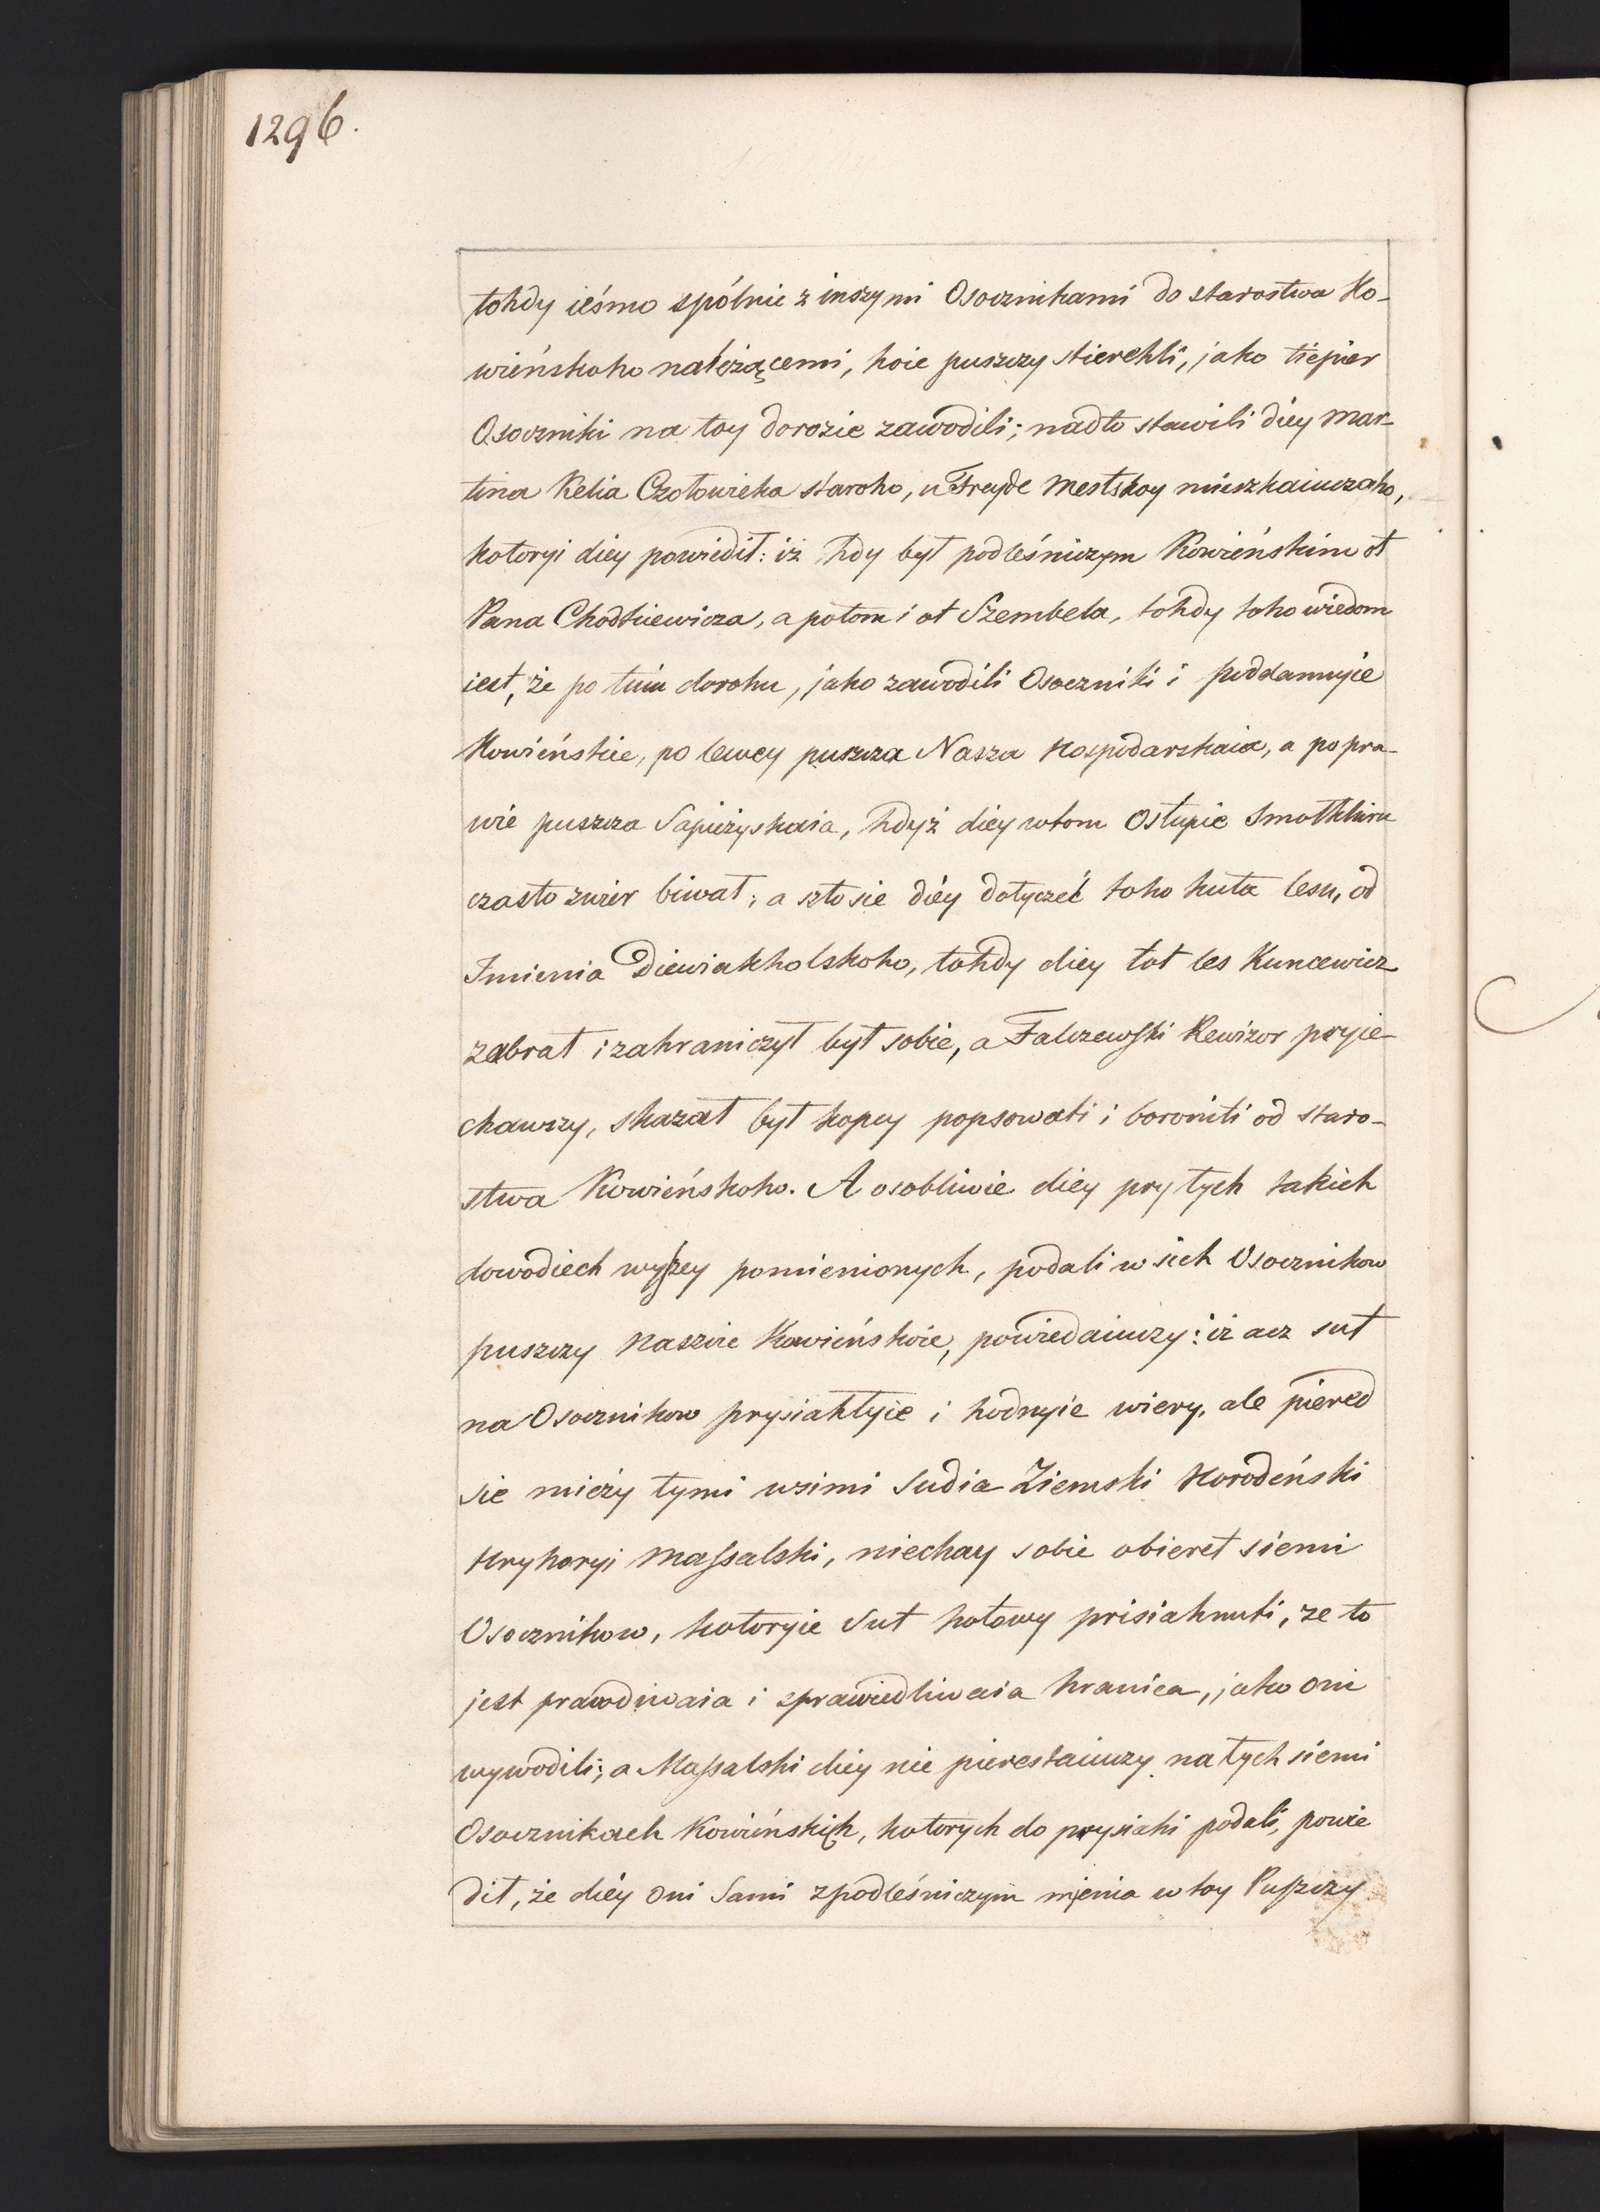 1296.
tohdy ieśmo spólnie z inszymi Osocznikami do starostwa Ko-
wieńskoho należącemi, hoie puszczy stierehli, jako tiepier
Osoczniki na toy dorozie zawodili; nadto stawili diey Mar-
tina Kelia Czołowieka staroho, u Freyde Mestskoy mieszkaiuczaho,
kotoryi diey powiedił: iż hdy był podleśniczym Kowieńskim ot
Pana Chodkiewicza, a potom i ot Szembela, tohdy toho wiedom
iest, że po tuiu dorohu, jako zawodili Osoczniki i poddannyie
Kowieńskie, po lewey puszcza Nasza Hospodarskaia, a po pra-
wie puszcza Sapieżyskaia, hdyż diey w tom Ostupie Smołkhiru
często zwier biwał; a szto sie diey dotyczeć toho kuta lesu, od
Imienia Diewiakholskoho, tohdy diey tot les Kuncewicz
zabrał i zahraniczył był sobie, a Falczewski Rewizor pryie-
chawszy, skazał był kopcy popsowati i boroniti od staro-
stwa Kowieńskoho. A osobliwie diey pry tych takich
dowodiech wyszey pomienionych, podali wsich Osocznikow
puszczy Naszoie Kowieńskoie, powiedaiuczy: iż acz sut
na Osocznikow prysiahłyie i hodnyie wiery, ale pired
sie mieży tymi wsimi Sudia Ziemski Horodeński
Hryhoryi Massalski, niechay sobie obieret siemi
Osocznikow, kotoryie Sut hotowy prisiahnuti, że to
jest prawdiwaia i sprawiedliwaia hranica, jako oni
wywodili; a Massalski diey nie pierestaiuczy na tych siemi
Osocznikach Kowieńskich, kotorych do prysiahi podali, powie
dił, że diey oni Sami z podleśniczym mienia w toy Puszczy